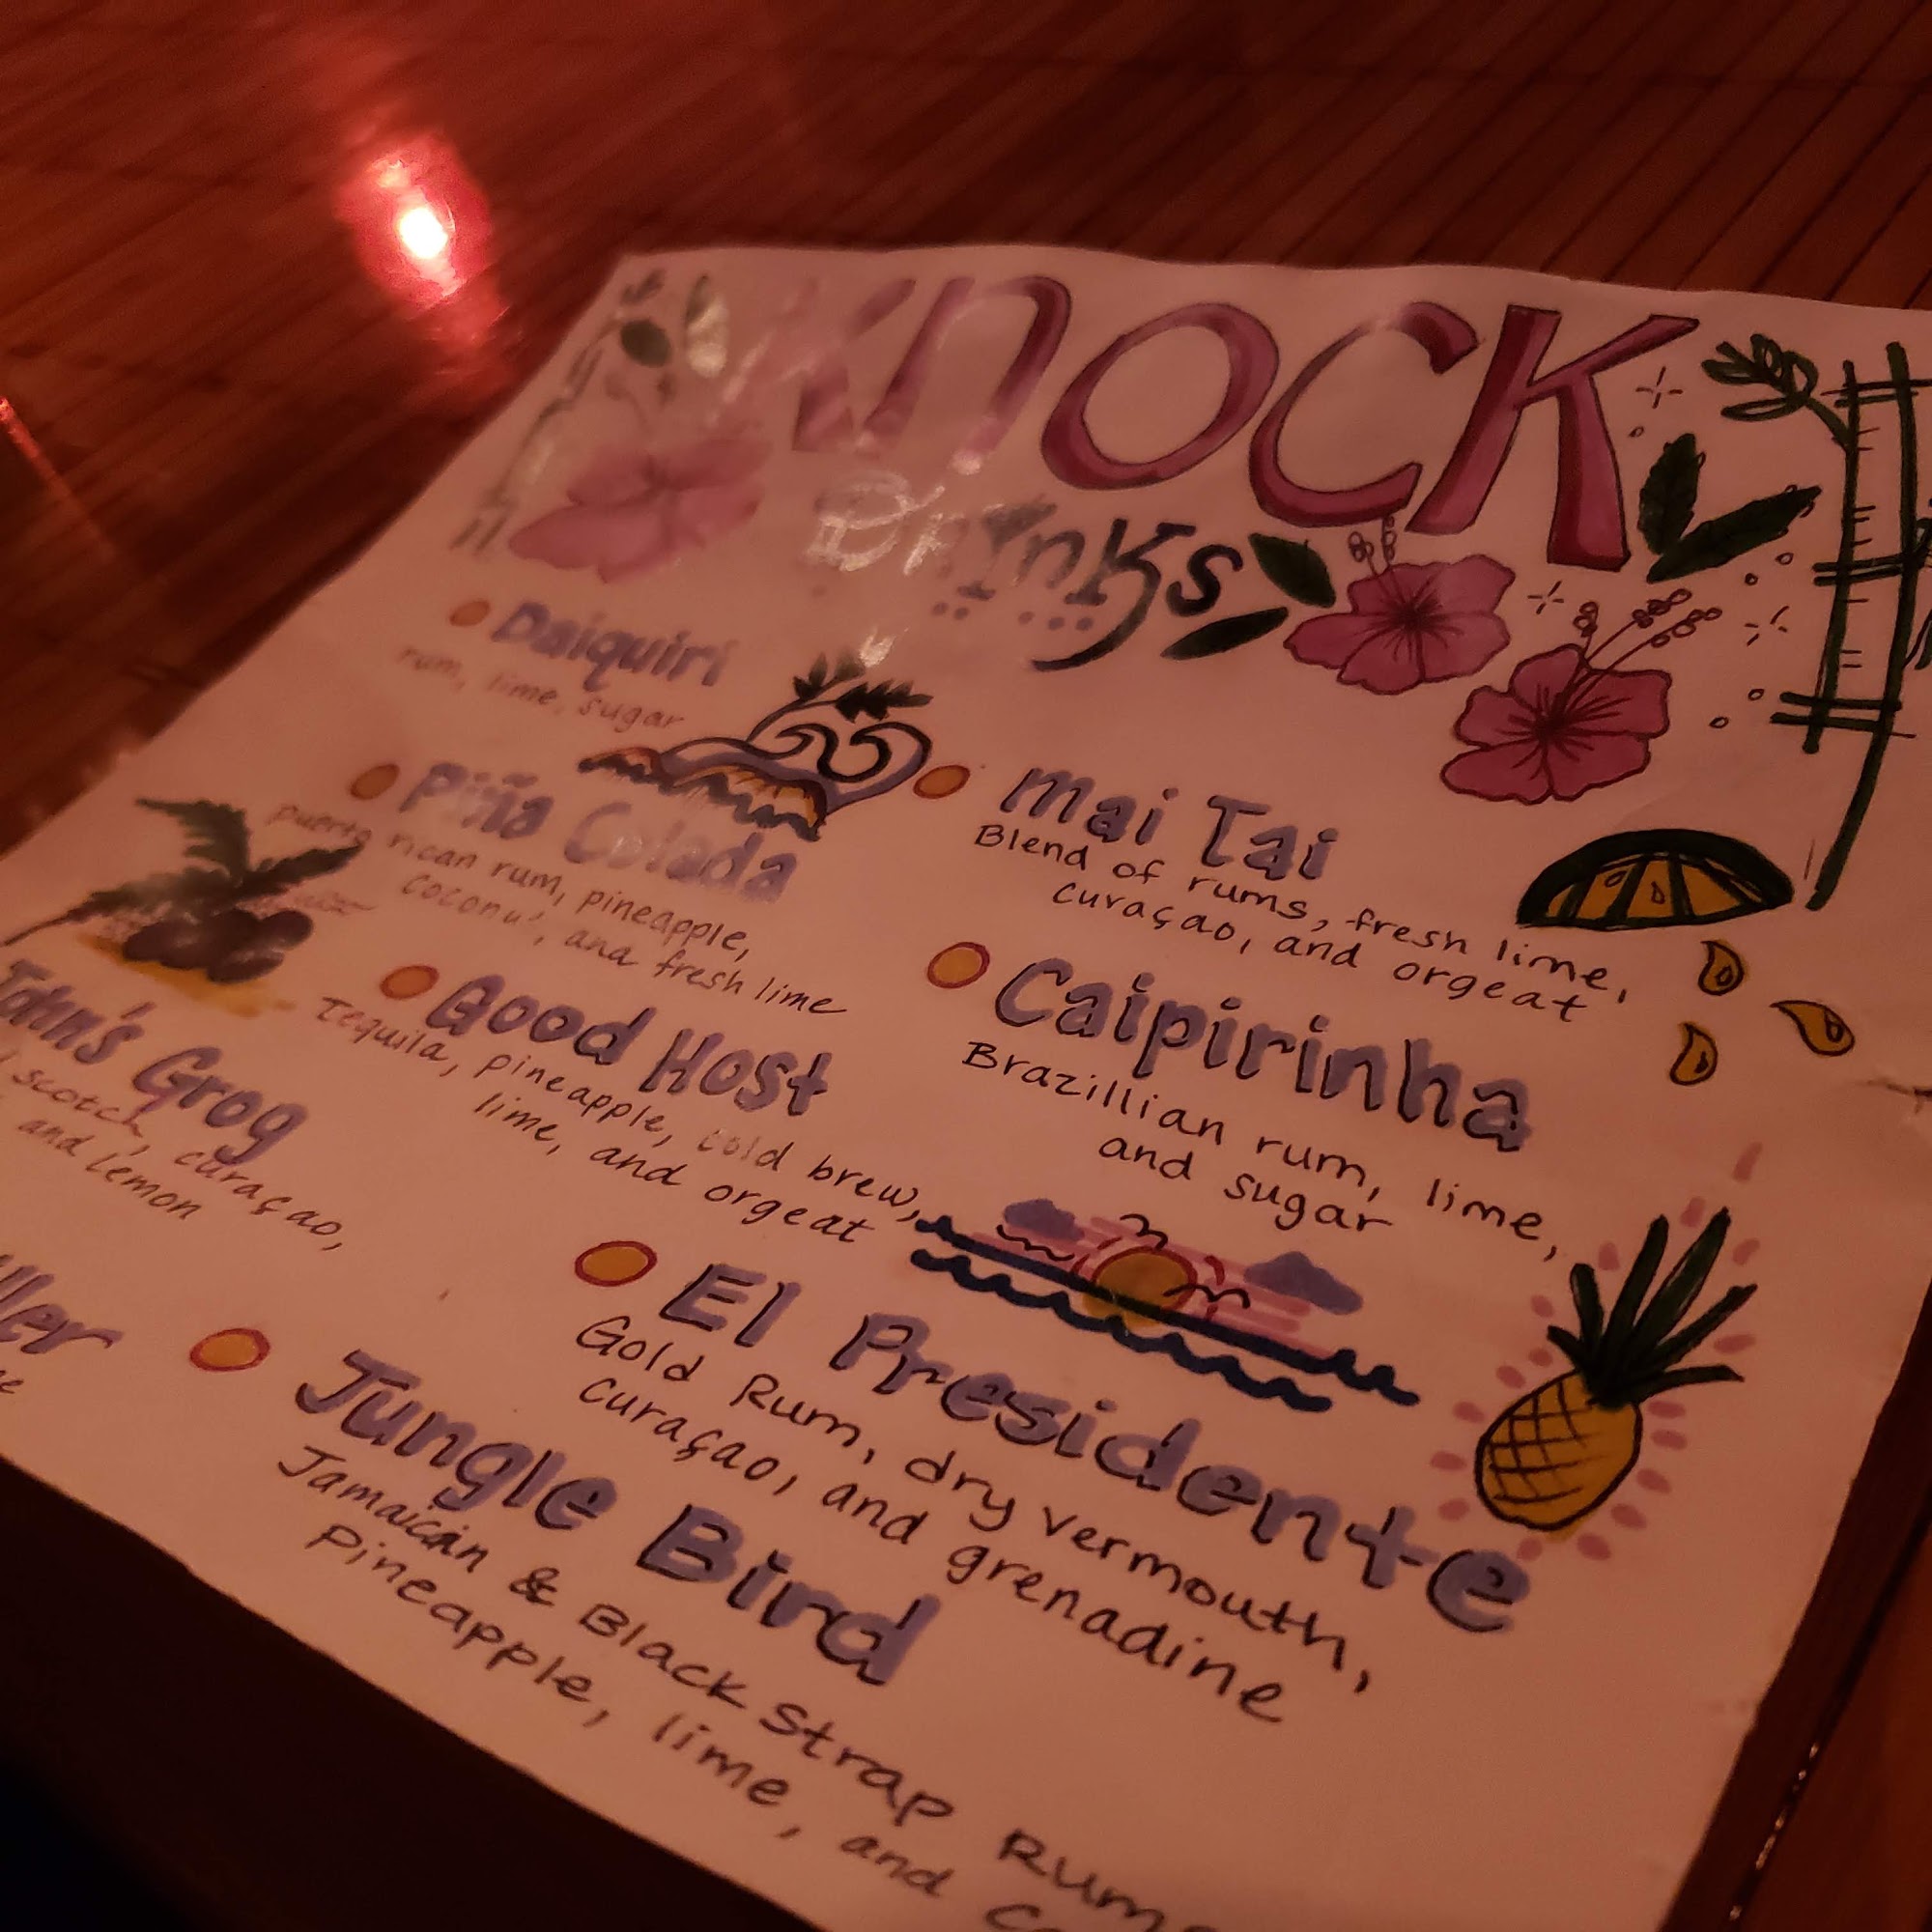 Knock
Drinks
Daiquiri
rum, lime, sugar
Piña Colada
puerto rican rum, pineapple,
coconut, and fresh lime
Mai Tai
Blend of rums, fresh lime,
curaçao, and orgeat
Good Host
Tequila, pineapple, cold brew,
lime, and orgeat
Caipirinha
Brazillian rum, lime,
and sugar
John's Grog
scotch, curaçao,
and lemon
El Presidente
Gold Rum, dry vermouth,
curaçao, and grenadine
Jungle Bird
Jamaican & Black Strap Rums
Pineapple, lime, and